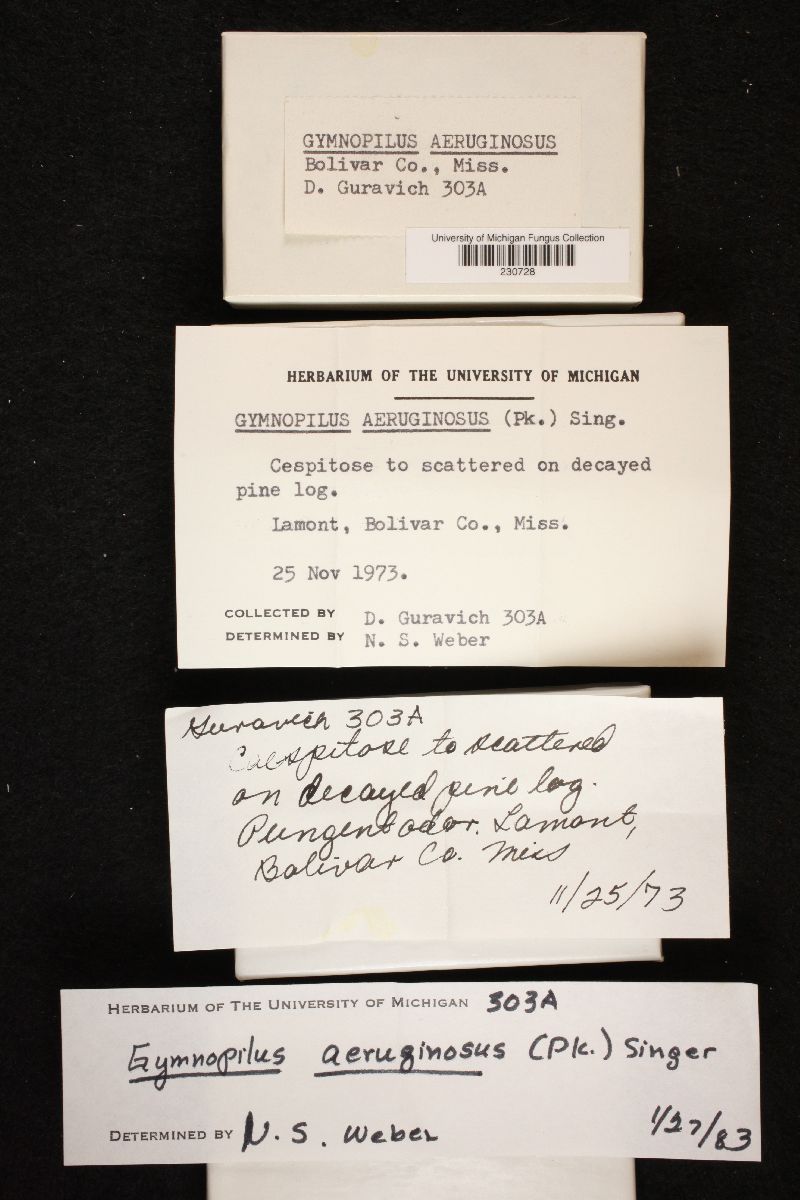 GYMNOPILUS AERUGINOSUS
Bolivar Co., Miss.
D. Guravich 303A
University of Michigan Fungus Collection
230728
HERBARIUM OF THE UNIVERSITY OF MICHIGAN
GYMNOPILUS AERUGINOSUS (Pk.) Sing.
Cespitose to scattered on decayed
pine log.
Lamont, Bolivar Co., Miss.
25 Nov 1973.
COLLECTED BY D. Guravich 303A
DETERMINED BY N. S. Weber
Guravich 303A
Caespitose to scattered
on decayed pine log.
Pungent odor. Lamont,
Bolivar Co. Miss
11/25/73
HERBARIUM OF THE UNIVERSITY OF MICHIGAN 303A
Gymnopilus aeruginosus (Pk.) Singer
DETERMINED BY N. S. Weber 1/27/83